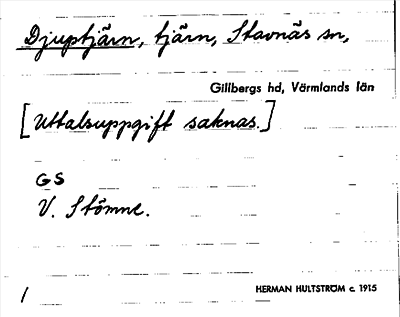 Djuptjärn, tjärn, Stavnäs sn,
Gillbergs hd, Värmlands län
[Uttalsuppgift saknas.]
GS
V. Stömne.
1
HERMAN HULTSTRÖM c. 1915